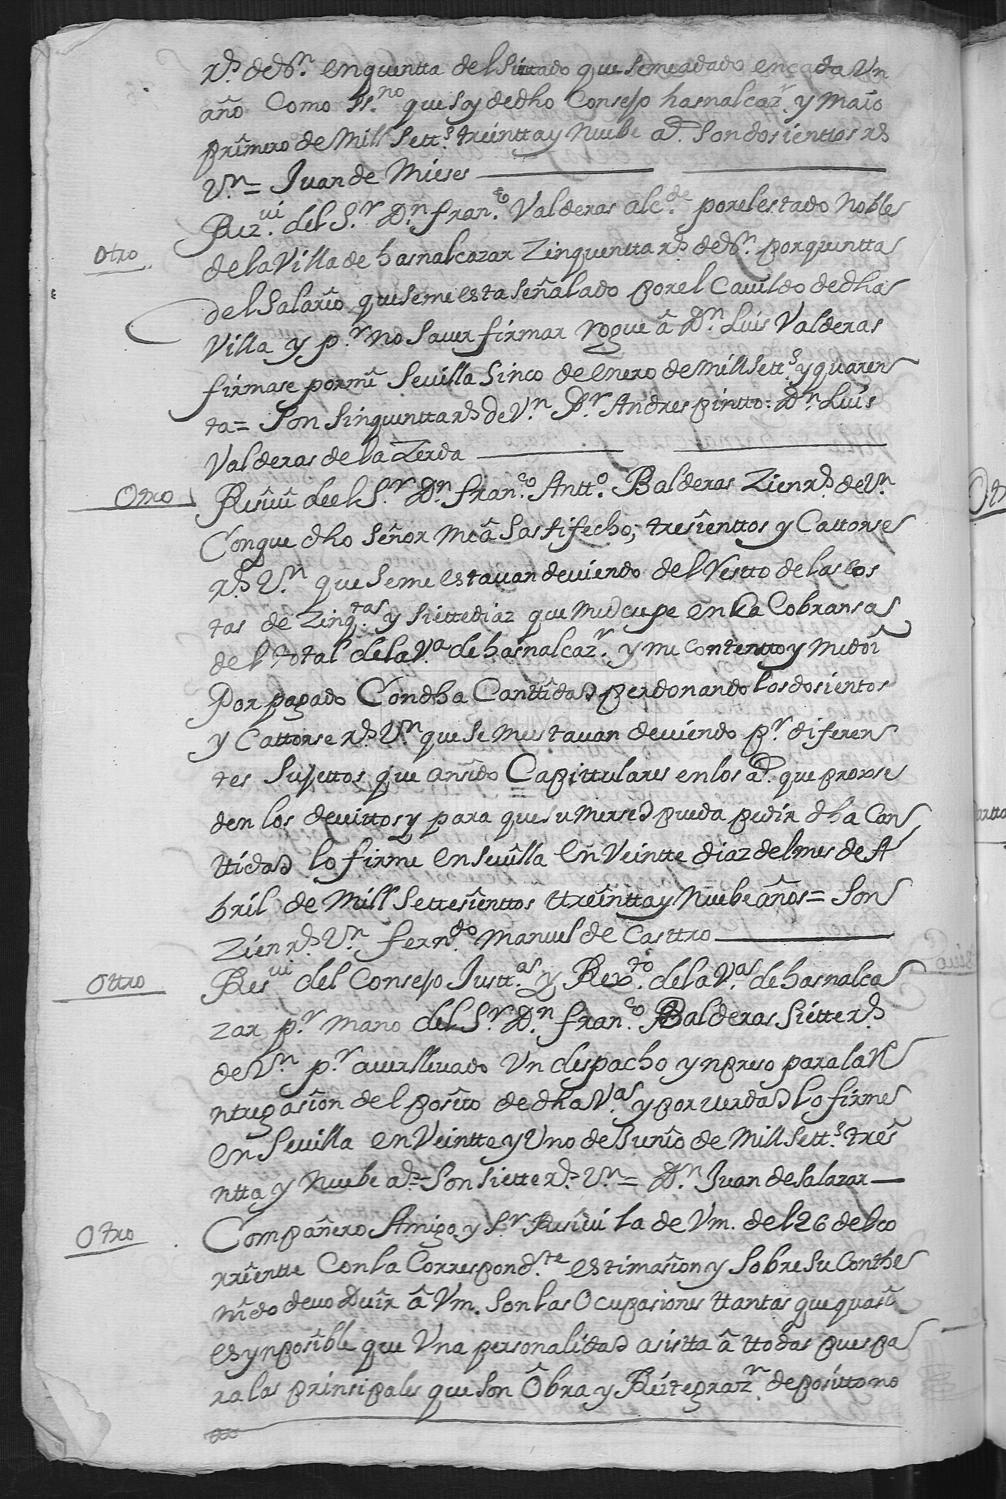 rs. de Vn. en quentta del sittado que se me a dado en cada Un
año Como Ss.no que soy de dho Consejo hasnalcazr. y Maio
primero de Mill Sett.s treintta y Nuebe ad. Son dosienttos rs
Vn. = Juan de Mieses
Otro
Rezui. del Sr. Dn. fran.co Valderas alc.de por el estado Noble
de la Villa de hasnalcazar Zinquentta rs. de Vn. por quentta
del Salario que se me esta señalado por el Cauildo de dha
Villa y pr. no Sauer firmar rogue â Dn. Luis Valderas
firmase por mi Seuilla Sinco de enero de mill Sett.s y quaren
ta = Son Sinquentta rs de Vn. Dr. Andres pintto: Dn. Luis
Valderas de la Zerda
Otro
Resiui de el Sr. Dn. fran.co Antt.o Balderas Zien rs. de Vn.
Con que dho Señor me â Sastifecho; tresienttos y Cattorse
rs. Vn. que se me estauan deuiendo del Restto de las cos
tas de Zinq.tas y siette diaz que me ocupe en la Cobransa
del total de la V.a de hasnalcazr. y me contentto y me doi
Por pagado Con dha Canttidad perdonando los dosientos
y Cattorse rs. Vn. que se me estauan deuiendo pr. diferen
tes Sujettos que an sido Capittulares en los ad. que prose
den los deuittos y para que su Mersed pueda pedir dha Can
ttidad lo firme en Seuilla en Veintte diaz del mes de A
bril de Mill Settesienttos ttreintta y Nuebe años = Son
Zien rs. Vn. fern.do Manuel de Casttro
Ottro
Resui del Consejo Justt.as y Rex.to de la V.as de hasnalca
zar pr. mano del Sr. Dn. fran.co Balderas Siette rs.
de Vn. pr. auer lleuado Un despacho ynpreso para la rei
ntregasion del posito de dha V.as y por uerdad lo firme
en Seuilla en Veintte y Uno de Junio de Mill Sett.s trei
ntta y Nuebe ad. Son siette rs. Vn. = Dn. Juan de Salazar
Otro
Compañero Amigo y Sr. Resiui la de Vm. del 26 del co
rriente Con la Correspond.te estimasion y Sobre Su Conthe
nido deuo Duir â Vm. Son las Ocupasiones ttantas que quasi
es ynposible que Una personalidad asistta â ttodas pues pa
ra las prinsipales que son Obra y Reitegrazn. de posittono